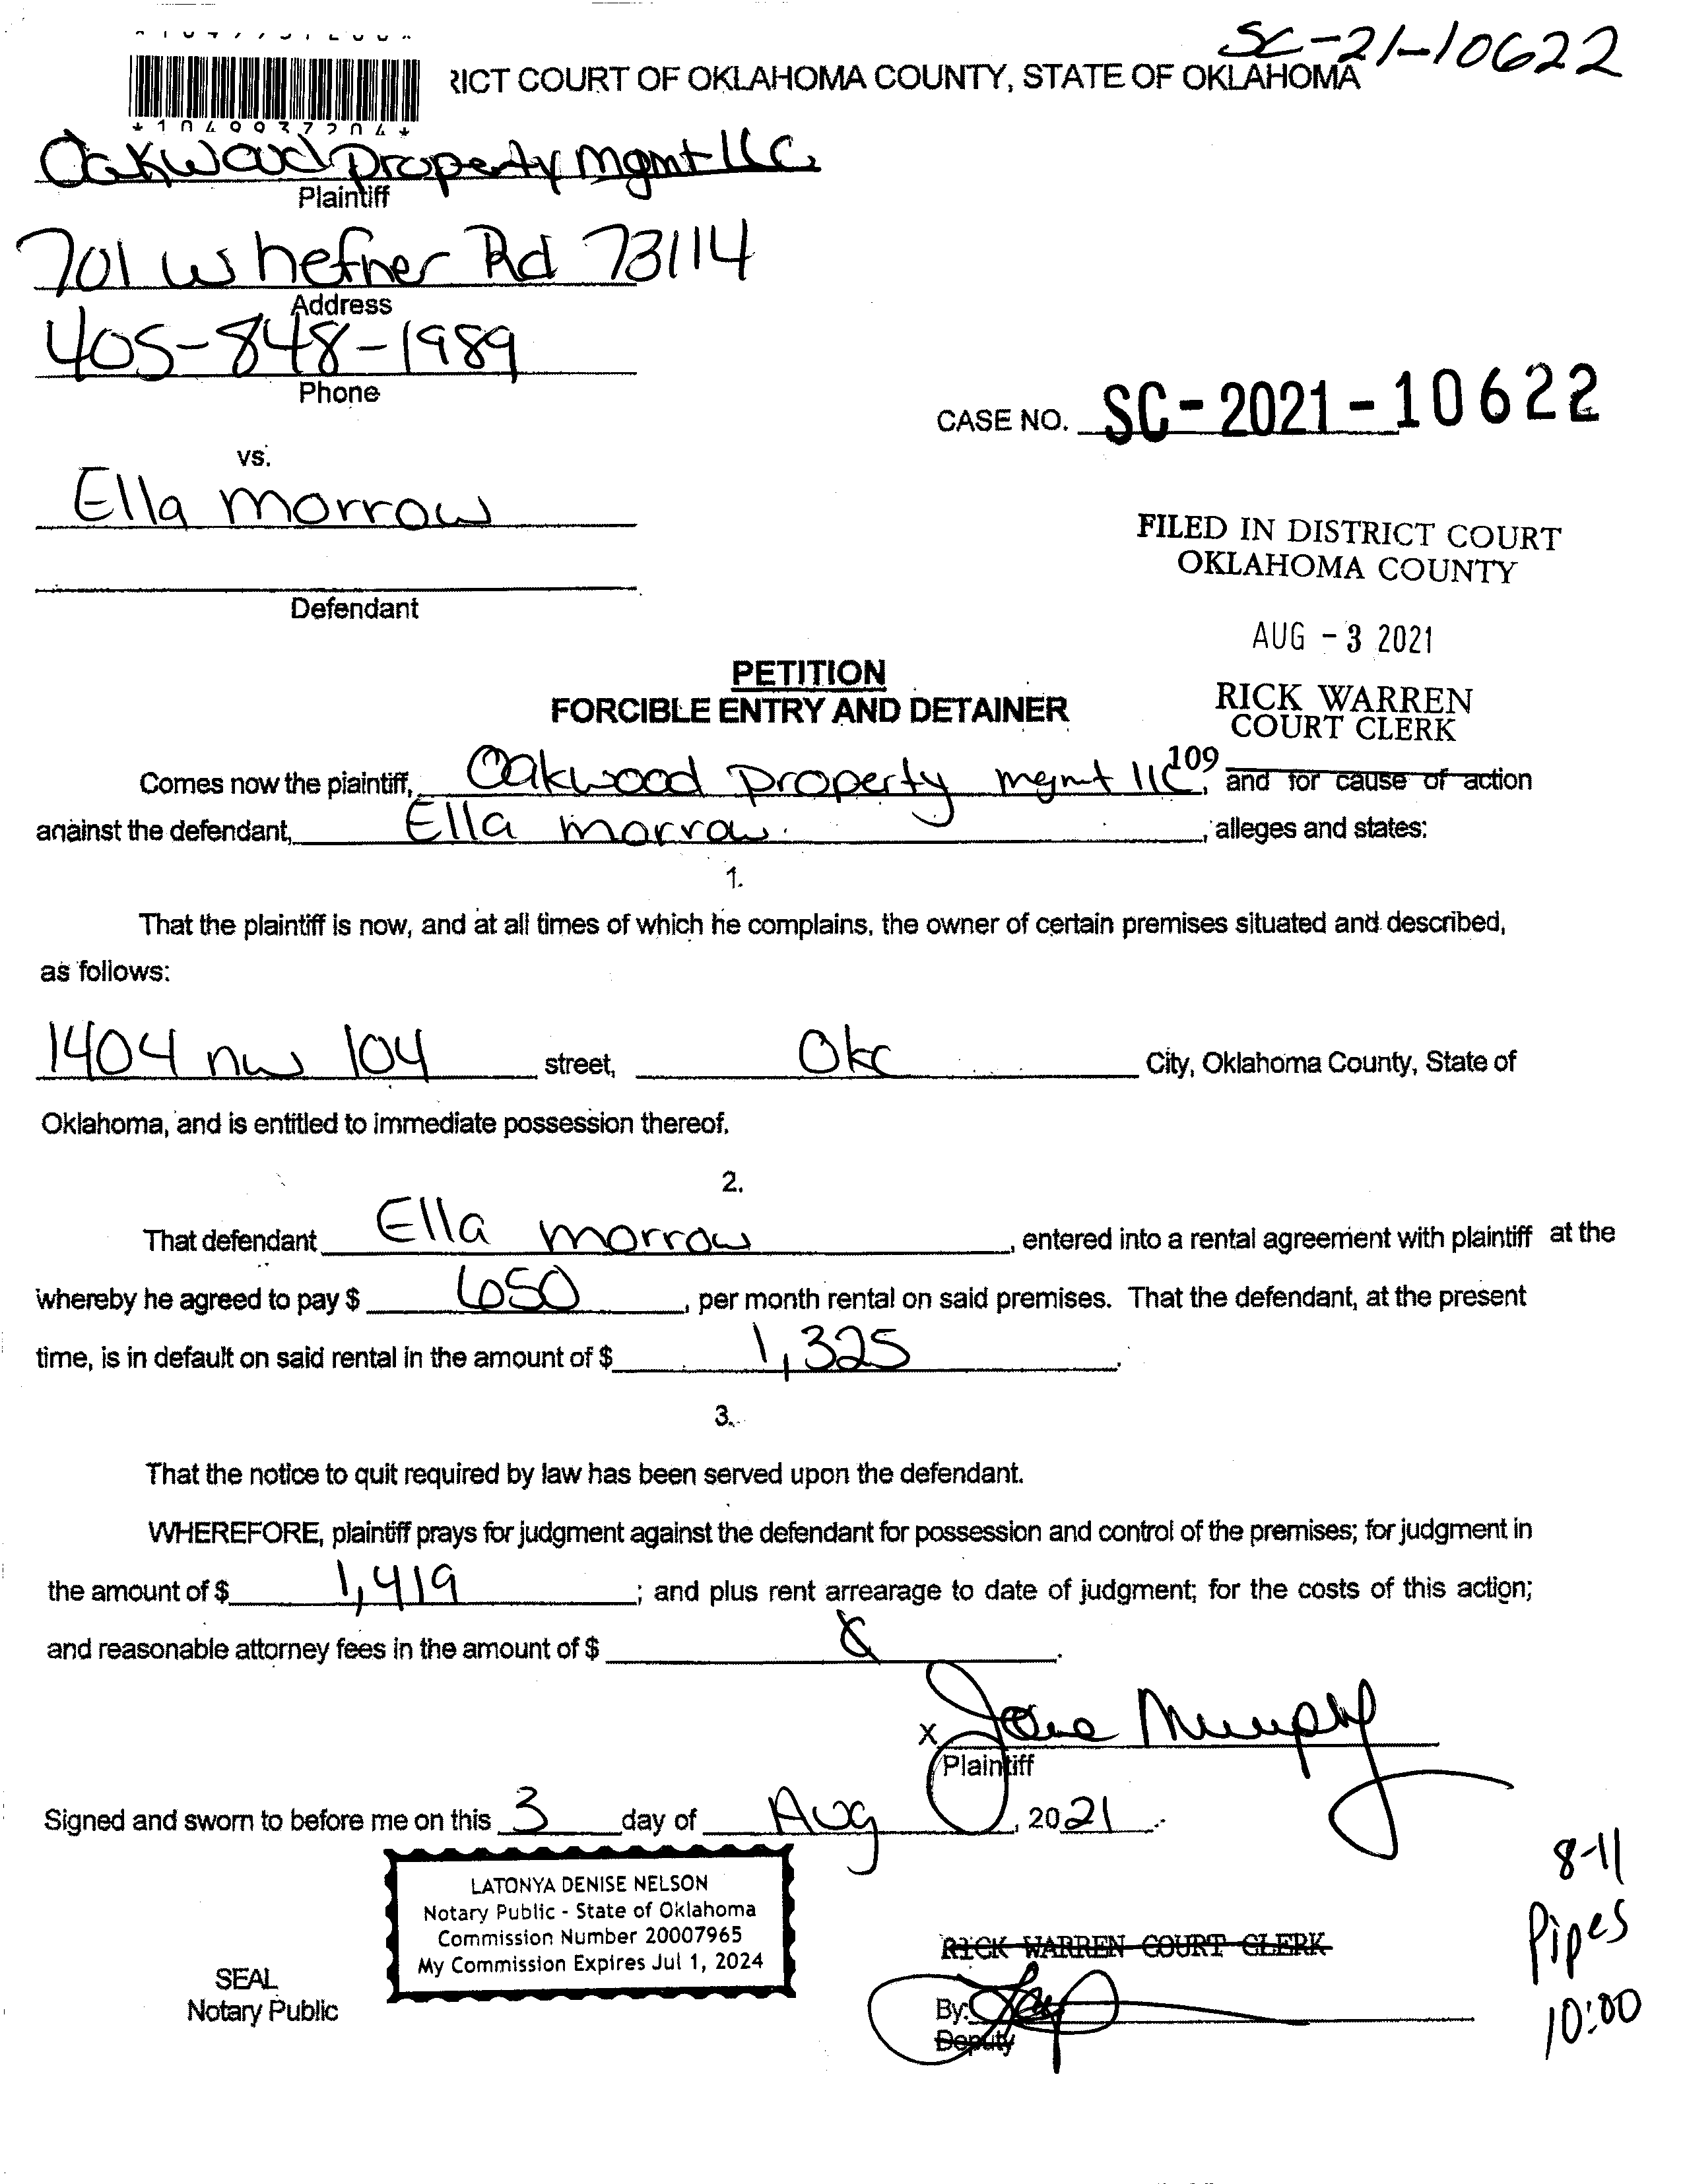 SC-21-10622
RICT COURT OF OKLAHOMA COUNTY, STATE OF OKLAHOMA
*1049937204*
Oakwood Property mgmt LLC
Plaintiff
701 W hefner Rd 73114
Address
405-848-1989
Phone
CASE NO. SC-2021-10622
vs.
Ella morrow
Defendant
FILED IN DISTRICT COURT
OKLAHOMA COUNTY
AUG -3 2021
RICK WARREN
COURT CLERK
109
PETITION
FORCIBLE ENTRY AND DETAINER
Comes now the plaintiff, Oakwood property mgmt llc, and for cause of action
against the defendant, Ella morrow, alleges and states:
1.
That the plaintiff is now, and at all times of which he complains, the owner of certain premises situated and described,
as follows:
1404 nw 104 street, Okc City, Oklahoma County, State of
Oklahoma, and is entitled to immediate possession thereof.
2.
That defendant Ella morrow, entered into a rental agreement with plaintiff at the
whereby he agreed to pay $ 650, per month rental on said premises. That the defendant, at the present
time, is in default on said rental in the amount of $ 1,325.
3.
That the notice to quit required by law has been served upon the defendant.
WHEREFORE, plaintiff prays for judgment against the defendant for possession and control of the premises; for judgment in
the amount of $ 1,419; and plus rent arrearage to date of judgment; for the costs of this action;
and reasonable attorney fees in the amount of $ .
X Jane Murphy
Plaintiff
Signed and sworn to before me on this 3 day of Aug, 2021.
LATONYA DENISE NELSON
Notary Public - State of Oklahoma
Commission Number 20007965
My Commission Expires Jul 1, 2024
SEAL
Notary Public
RICK WARREN COURT CLERK
By:
Deputy
8-11
Pipes
10:00